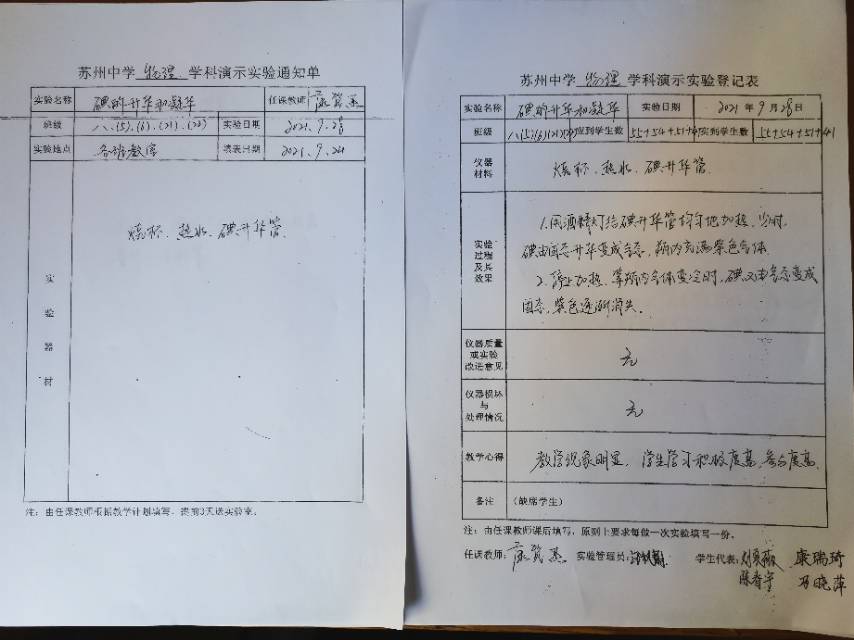 苏州中学 物理 学科演示实验通知单
实验名称 碘的升华和凝华 任课教师
班级 八、(5)、(6)、(21)、(22) 实验日期 2021、9、28
实验地点 各班教室 填表日期 2021、9、24
实验器材
烧杯、热水、碘升华管
注：由任课教师根据教学计划填写，提前3天送实验室。
苏州中学 物理 学科演示实验登记表
实验名称 碘的升华和凝华 实验日期 2021 年 9 月 28 日
班级 应到学生数 实到学生数 55+54+51+41
仪器材料 烧杯、热水、碘升华管
实验过程及其效果
1.用酒精灯给碘升华管均匀地加热，少时，
碘由固态升华变成气态，瓶内充满紫色气体
2、停止加热，等瓶内气体变冷时，碘又由气态变成
固态，紫色逐渐消失。
仪器质量或实验改进意见 无
仪器损坏与处理情况 无
教学心得 教学现象明显，学生学习积极度高，参与度高
备注 (缺席学生)
注：由任课教师课后填写，原则上要求每做一次实验填写一份。
任课教师： 实验管理员： 学生代表： 康瑞琦
马晓萍